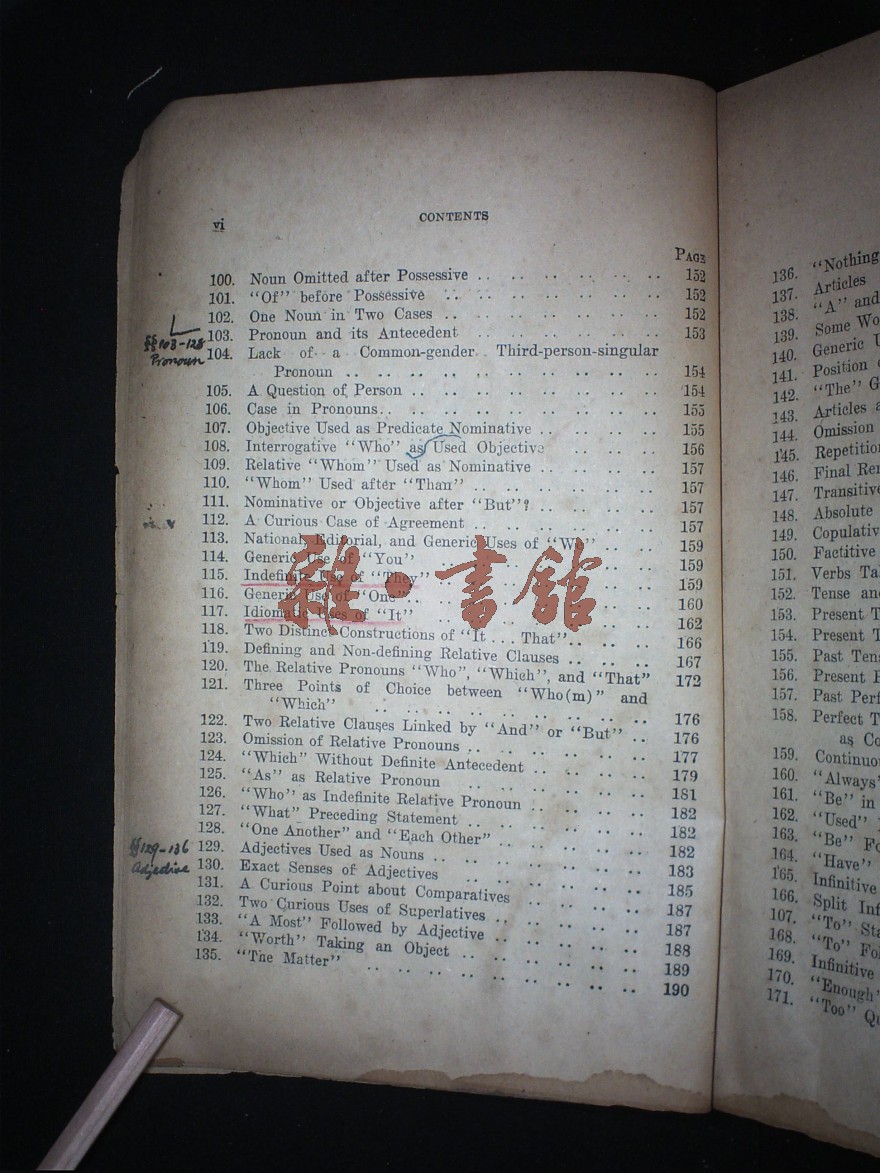 vi
CONTENTS
PAGE
100. Noun Omitted after Possessive .. .. .. .. .. .. 152
101. "Of" before Possessive .. .. .. .. .. .. 152
102. One Noun in Two Cases .. .. .. .. .. .. 152
103. Pronoun and its Antecedent .. .. .. .. .. .. 153
§§103-128
Pronoun
104. Lack of a Common-gender Third-person-singular
Pronoun .. .. .. .. .. .. .. .. 154
105. A Question of Person .. .. .. .. .. .. .. 154
106. Case in Pronouns .. .. .. .. .. .. .. 155
107. Objective Used as Predicate Nominative .. .. .. .. 155
108. Interrogative "Who" as Used Objective .. .. .. 156
109. Relative "Whom" Used as Nominative .. .. .. .. 157
110. "Whom" Used after "Than" .. .. .. .. .. .. 157
111. Nominative or Objective after "But"? .. .. .. .. 157
112. A Curious Case of Agreement .. .. .. .. .. .. 157
113. National, Editorial, and Generic Uses of "We" .. .. 159
114. Generic Use of "You" .. .. .. .. .. 159
115. Indefinite Use of "They" .. .. .. .. .. 159
116. Generic Use of "One" .. .. .. .. .. 160
117. Idiomatic Uses of "It" .. .. .. .. .. 162
118. Two Distinct Constructions of "It . . . That" .. .. .. 166
119. Defining and Non-defining Relative Clauses .. .. .. 167
120. The Relative Pronouns "Who", "Which", and "That" 172
121. Three Points of Choice between "Who(m)" and
"Which" .. .. .. .. .. .. .. .. 176
122. Two Relative Clauses Linked by "And" or "But" .. 176
123. Omission of Relative Pronouns .. .. .. .. .. 177
124. "Which" Without Definite Antecedent .. .. .. .. 179
125. "As" as Relative Pronoun .. .. .. .. .. 181
126. "Who" as Indefinite Relative Pronoun .. .. .. .. 182
127. "What" Preceding Statement .. .. .. .. .. 182
128. "One Another" and "Each Other" .. .. .. .. 182
§§129-136
Adjective
129. Adjectives Used as Nouns .. .. .. .. .. .. 183
130. Exact Senses of Adjectives .. .. .. .. .. 185
131. A Curious Point about Comparatives .. .. .. .. 187
132. Two Curious Uses of Superlatives .. .. .. .. 187
133. "A Most" Followed by Adjective .. .. .. .. 188
134. "Worth" Taking an Object .. .. .. .. .. 189
135. "The Matter" .. .. .. .. .. .. .. 190
雜·書館
136. "Nothing
137. Articles
138. "A" and
139. Some Wo
140. Generic U
141. Position
142. "The" G
143. Articles a
144. Omission
145. Repetitio
146. Final Re
147. Transitive
148. Absolute
149. Copulativ
150. Factitive
151. Verbs Ta
152. Tense an
153. Present T
154. Present T
155. Past Ten
156. Present P
157. Past Perf
158. Perfect T
as Co
159. Continuo
160. "Always"
161. "Be" in
162. "Used"
163. "Be" Fo
164. "Have"
165. Infinitive
166. Split Inf
107. "To" Sta
168. "To" Fol
169. Infinitive
170. "Enough"
171. "Too" Qu